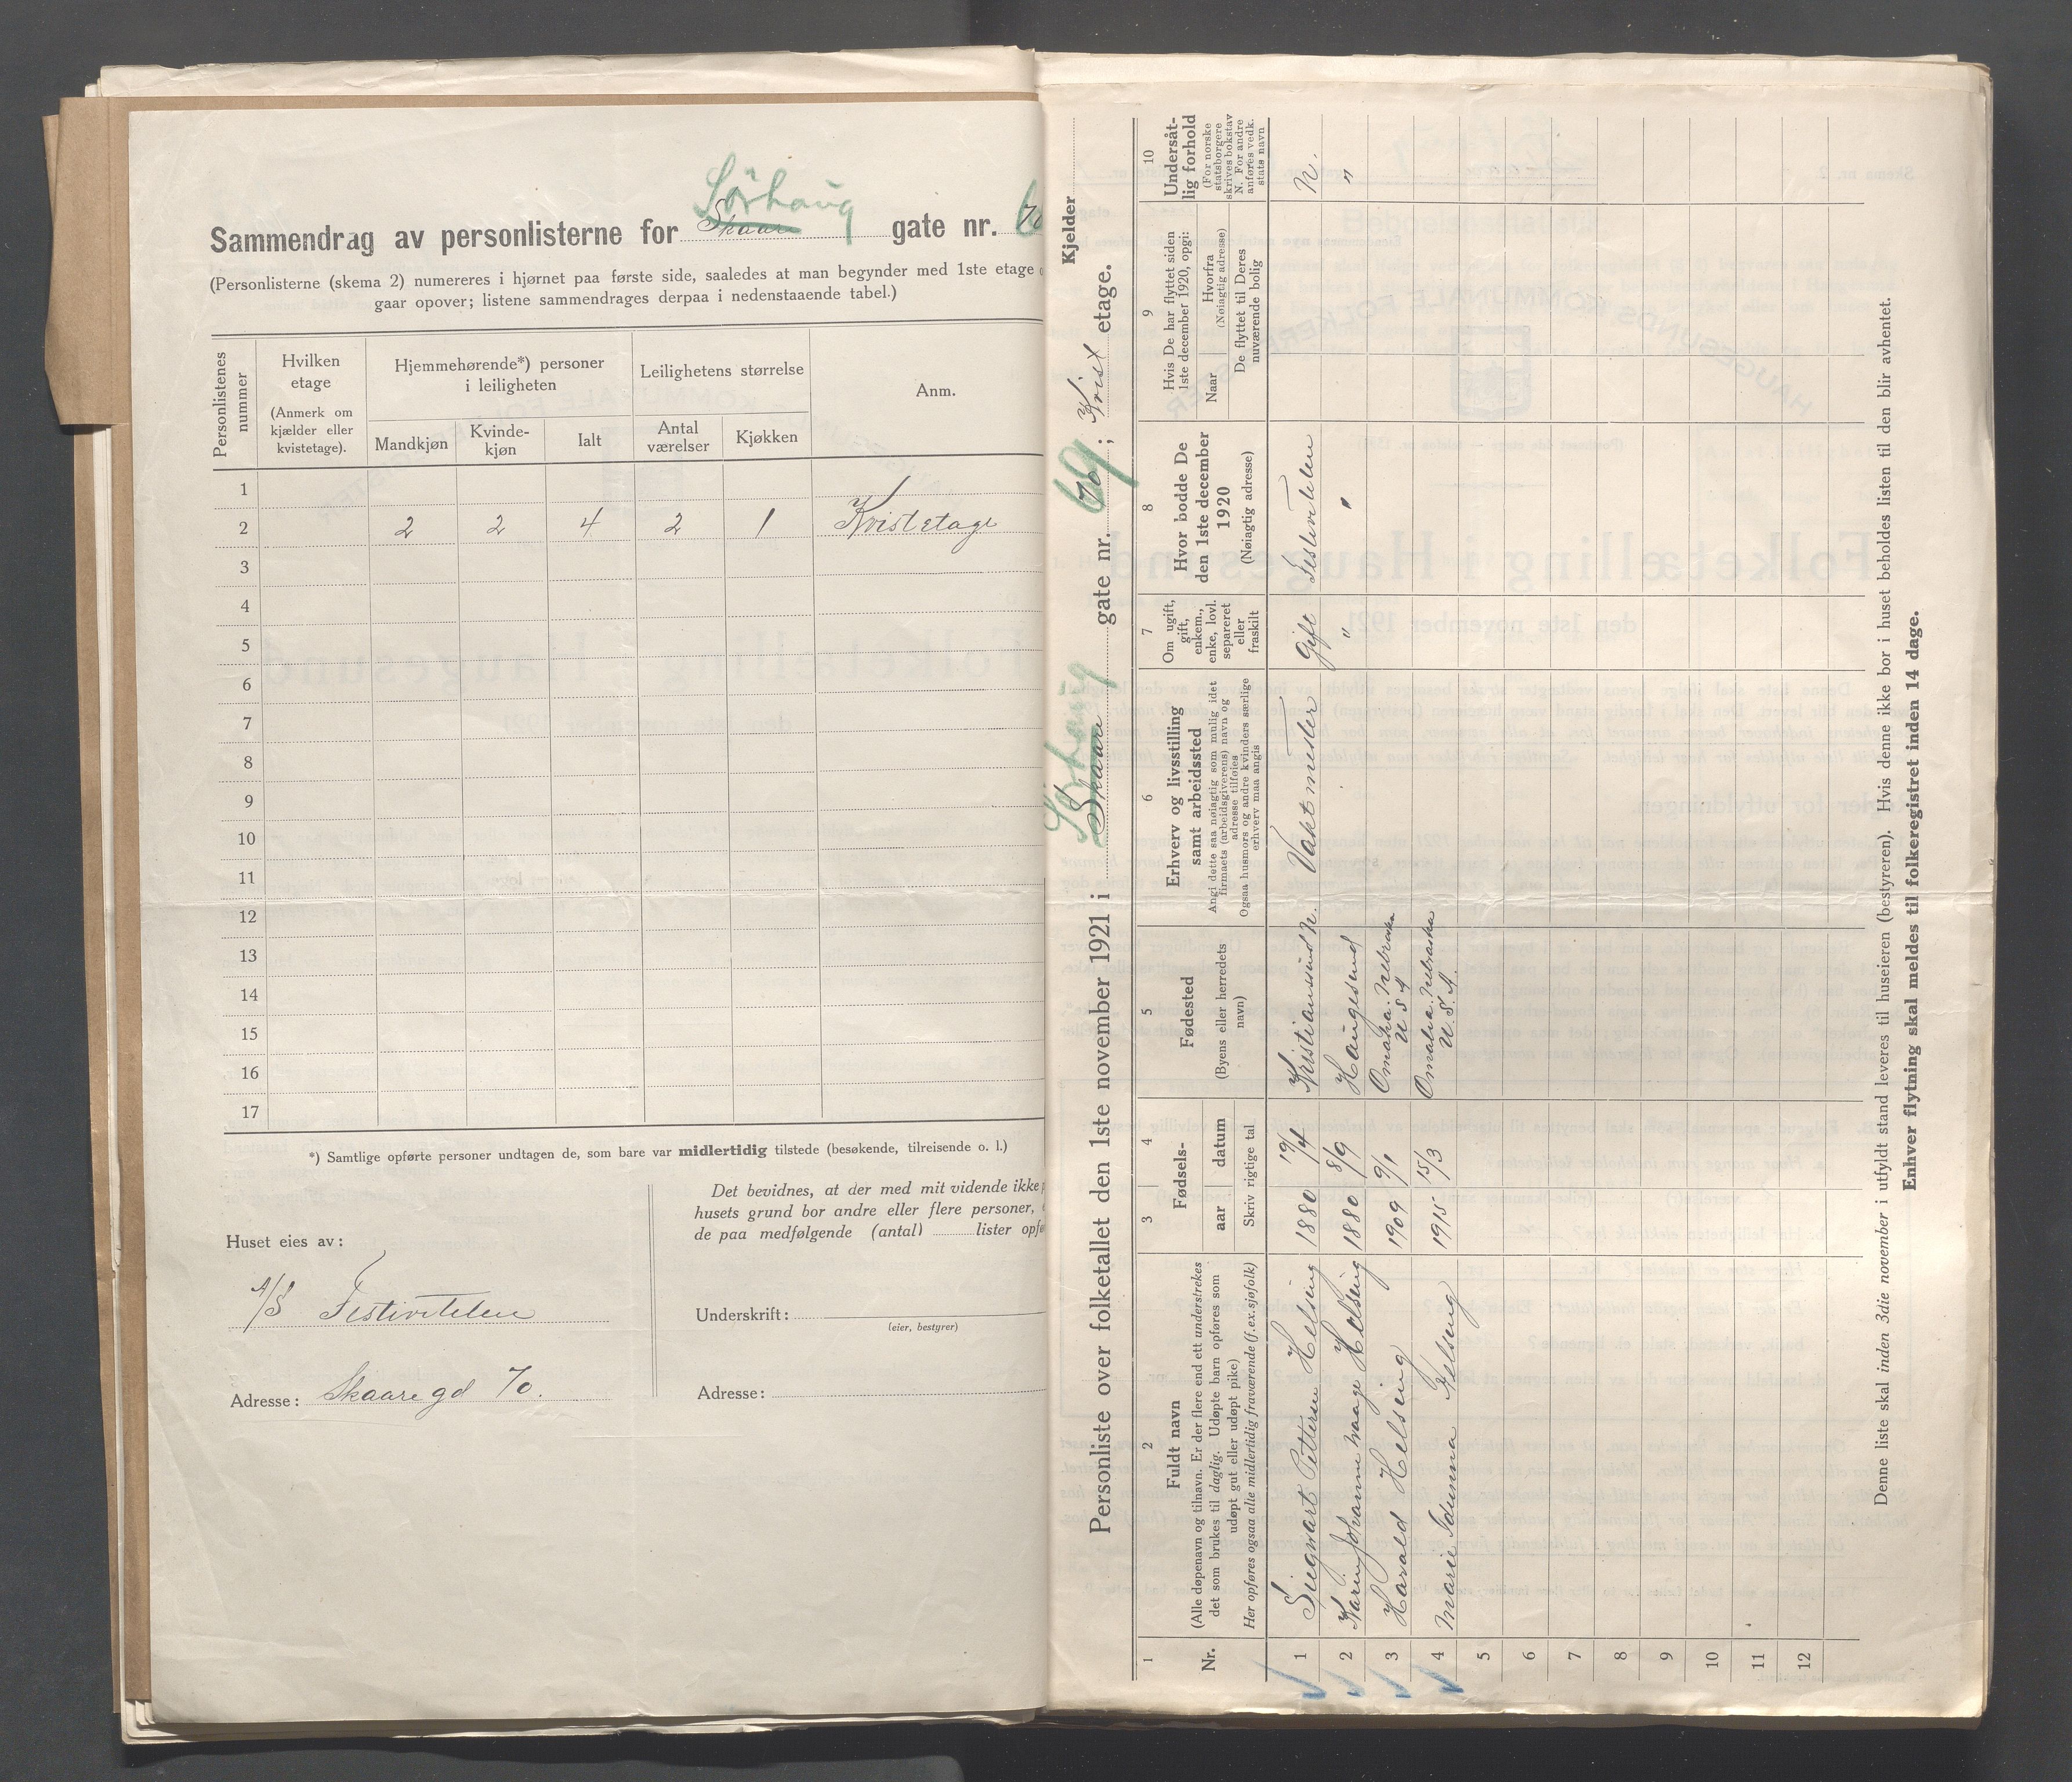 Sørhaug
Sammendrag av personlisterne for Skaare gate nr. 70
(Personlisterne (skema 2) numereres i hjørnet paa første side, saaledes at man begynder med 1ste etage
gaar opover; listene sammendrages derpaa i nedenstaaende tabel.)
Personlistenes nummer
Hvilken etage
(Anmerk om kjælder eller kvistetage).
Hjemmehørende*) personer i leiligheten
Mandkjøn
Kvindekjøn
Ialt
Leilighetens størrelse
Antal værelser
Kjøkken
Anm.
1
2 2 2 4 2 1 Kvistetage
3
4
5
6
7
8
9
10
11
12
13
14
15
16
17
*) Samtlige opførte personer undtagen de, som bare var midlertidig tilstede (besøkende, tilreisende o. l.)
Huset eies av:
A/S Festiviteten
Adresse: Skaaregd 70.
Det bevidnes, at der med mit vidende ikke
husets grund bor andre eller flere personer,
de paa medfølgende (antal) lister opfø
Underskrift:
(eier, bestyrer)
Adresse:
Kjelder
Sørhaug 69
Personliste over folketallet den 1ste november 1921 i Skaare gate nr. 70; Kvist etage.
1
Nr.
2
Fuldt navn
(Alle døpenavn og tilnavn. Er der flere end ett understrekes
det som brukes til daglig. Udøpte barn opføres som
udøpt gut eller udøpt pike)
Her opføres ogsaa alle midlertidig fraværende (f.ex.sjøfolk)
3 4
Fødsels-
aar datum
Skriv rigtige tal
5
Fødested
(Byens eller herredets navn)
6
Erhverv og livsstilling
samt arbeidssted
Angi dette saa nøiagtig som mulig idet
firmaets (arbeidsgiverens) navn og
adresse tilføies
Ogsaa husmors og andre kvinders særlige
erhverv maa angis
7
Om ugift,
gift,
enkem.,
enke, lovl.
separeret
eller
fraskilt
8
Hvor bodde De
den 1ste december
1920
(Nøiagtig adresse)
9
Hvis De har flyttet siden
1ste december 1920, opgi:
Naar
Hvorfra
(Nøiagtig adresse)
De flyttet til Deres
nuværende bolig
10
Undersåt-
lig forhold
(For norske
statsborgere
skrives bokstav
N. For andre
anføres vedk.
stats navn
1 Sigwart Pettersen Helseng 1880 19/4 Kristianssund N. Vaktmester Gift Festiviteten N.
2 Karen Johanne Waage Helseng 1880 8/9 Haugesund " " "
3 Harald Helseng 1909 9/1 Omaha. Nebraska U S A
4 Marie Helseng 1915 15/3 Omaha. Nebraska U. S. A.
5
6
7
8
9
10
11
12
Denne liste skal inden 3die november i utfyldt stand leveres til huseieren (bestyreren). Hvis denne ikke bor i huset beholdes listen til den blir avhentet.
Enhver flytning skal meldes til folkeregistret inden 14 dage.